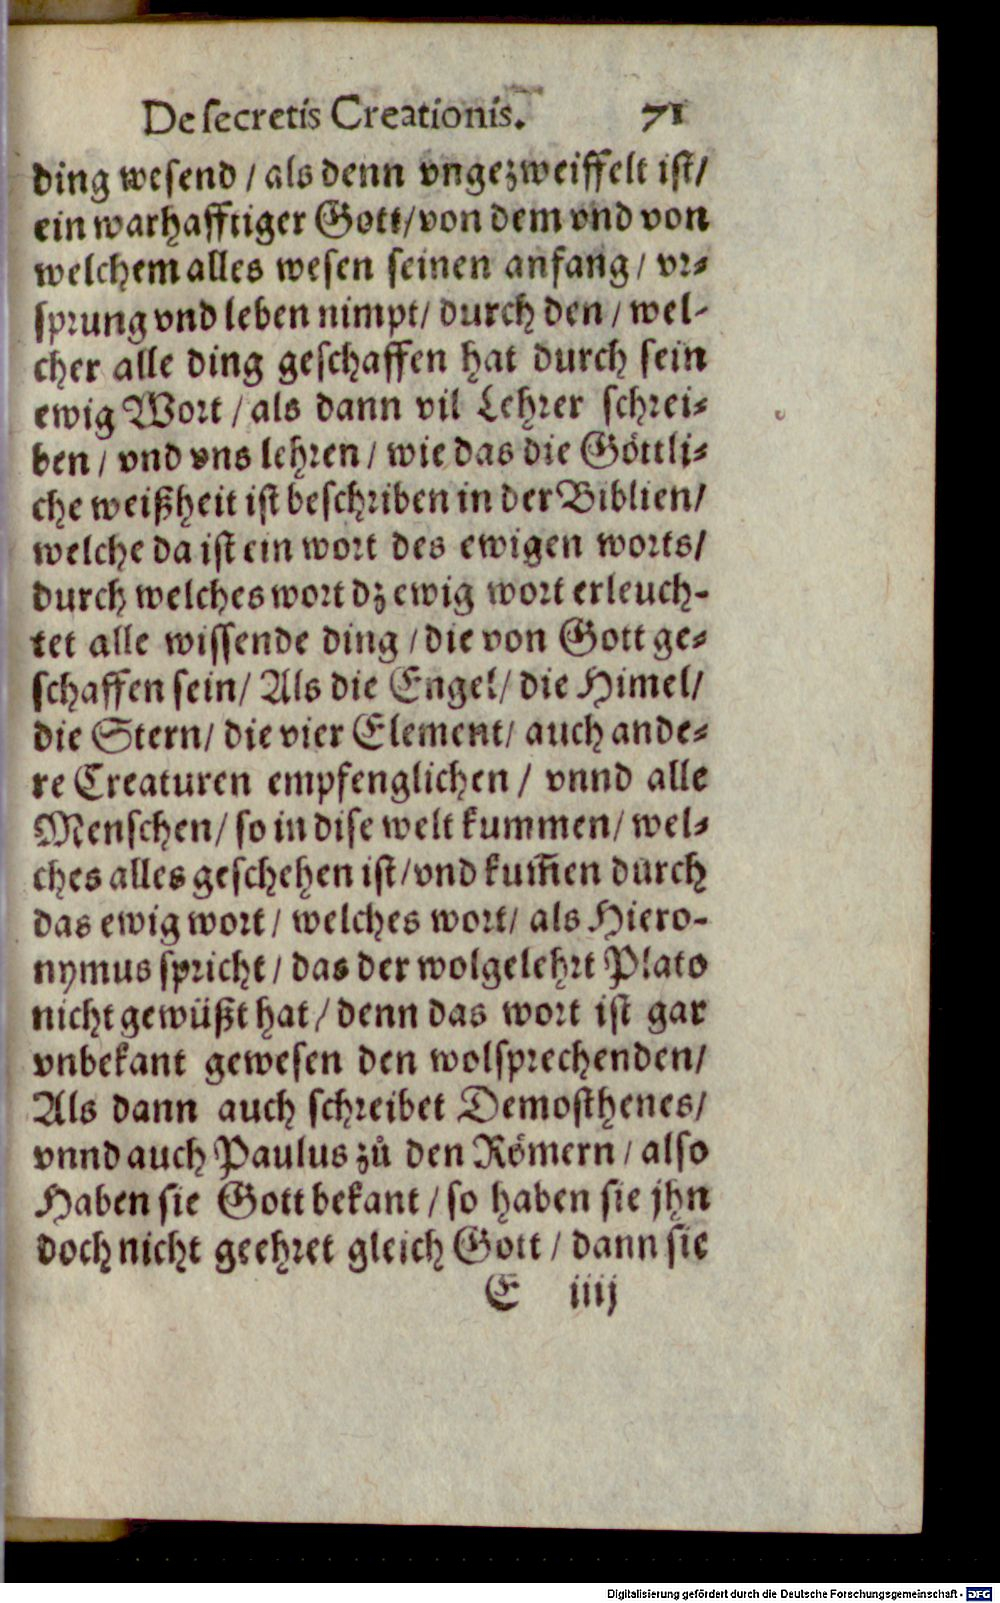 De secretis Creationis. 71
ding wesend / als denn vngezweiffelt ist/
ein warhafftiger Gott/von dem vnd von
welchem alles wesen seinen anfang / vr⸗
sprung vnd leben nimpt/ durch den / wel-
cher alle ding geschaffen hat durch sein
ewig Wort / als dann vil Lehrer schrei⸗
ben / vnd vns lehren / wie das die Göttli⸗
che weißheit ist beschriben in der Biblien/
welche da ist ein wort des ewigen worts/
durch welches wort dz ewig wort erleuch-
tet alle wissende ding / die von Gott ge⸗
schaffen sein/ Als die Engel/ die Himel/
die Stern/ die vier Element/ auch ande⸗
re Creaturen empfenglichen / vnnd alle
Menschen/ so in dise welt kummen/ wel⸗
ches alles geschehen ist/vnd kum̃en durch
das ewig wort / welches wort/ als Hiero-
nymus spricht / das der wolgelehrt Plato
nicht gewüßt hat / denn das wort ist gar
vnbekant gewesen den wolsprechenden/
Als dann auch schreibet Demosthenes/
vnnd auch Paulus zů den Römern / also
Haben sie Gott bekant / so haben sie jhn
doch nicht geehret gleich Gott / dann sie
E iiij
Digitalisierung gefördert durch die Deutsche Forschungsgemeinschaft - DFG